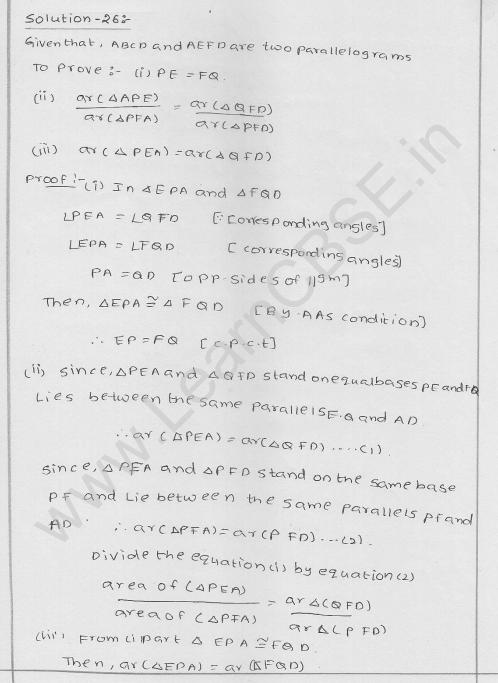 Solution-26:-
Given that, ABCD and AEFD are two parallelograms
To Prove :- (i) PE = FQ.
(ii) ar(△APE) / ar(△PFA) = ar(△QFD) / ar(△PFD)
(iii) ar(△PEA) = ar(△QFD)
Proof :- (i) In △EPA and △FQD
∠PEA = ∠QFD [∵ Corresponding angles]
∠EPA = ∠FQD [corresponding angles]
PA = QD [opp. sides of ||gm]
Then, △EPA ≅ △FQD [By. AAS condition]
∴ EP = FQ [c.p.c.t]
(ii) Since, △PEA and △QFD stand on equal bases PE and FQ
Lies between the same parallels E.Q and AD
∴ ar(△PEA) = ar(△QFD) ....(1).
Since, △PFA and △PFD stand on the same base
PF and Lie between the same parallels PF and
AD ∴ ar(△PFA) = ar(PFD) ...(2).
Divide the equation (1) by equation (2)
area of (△PEA) / area of (△PFA) = ar △(QFD) / ar △(PFD)
(iii) From (i) part △EPA ≅ FQD.
Then, ar(△EPA) = ar(△FQD).
www.LearnCBSE.in